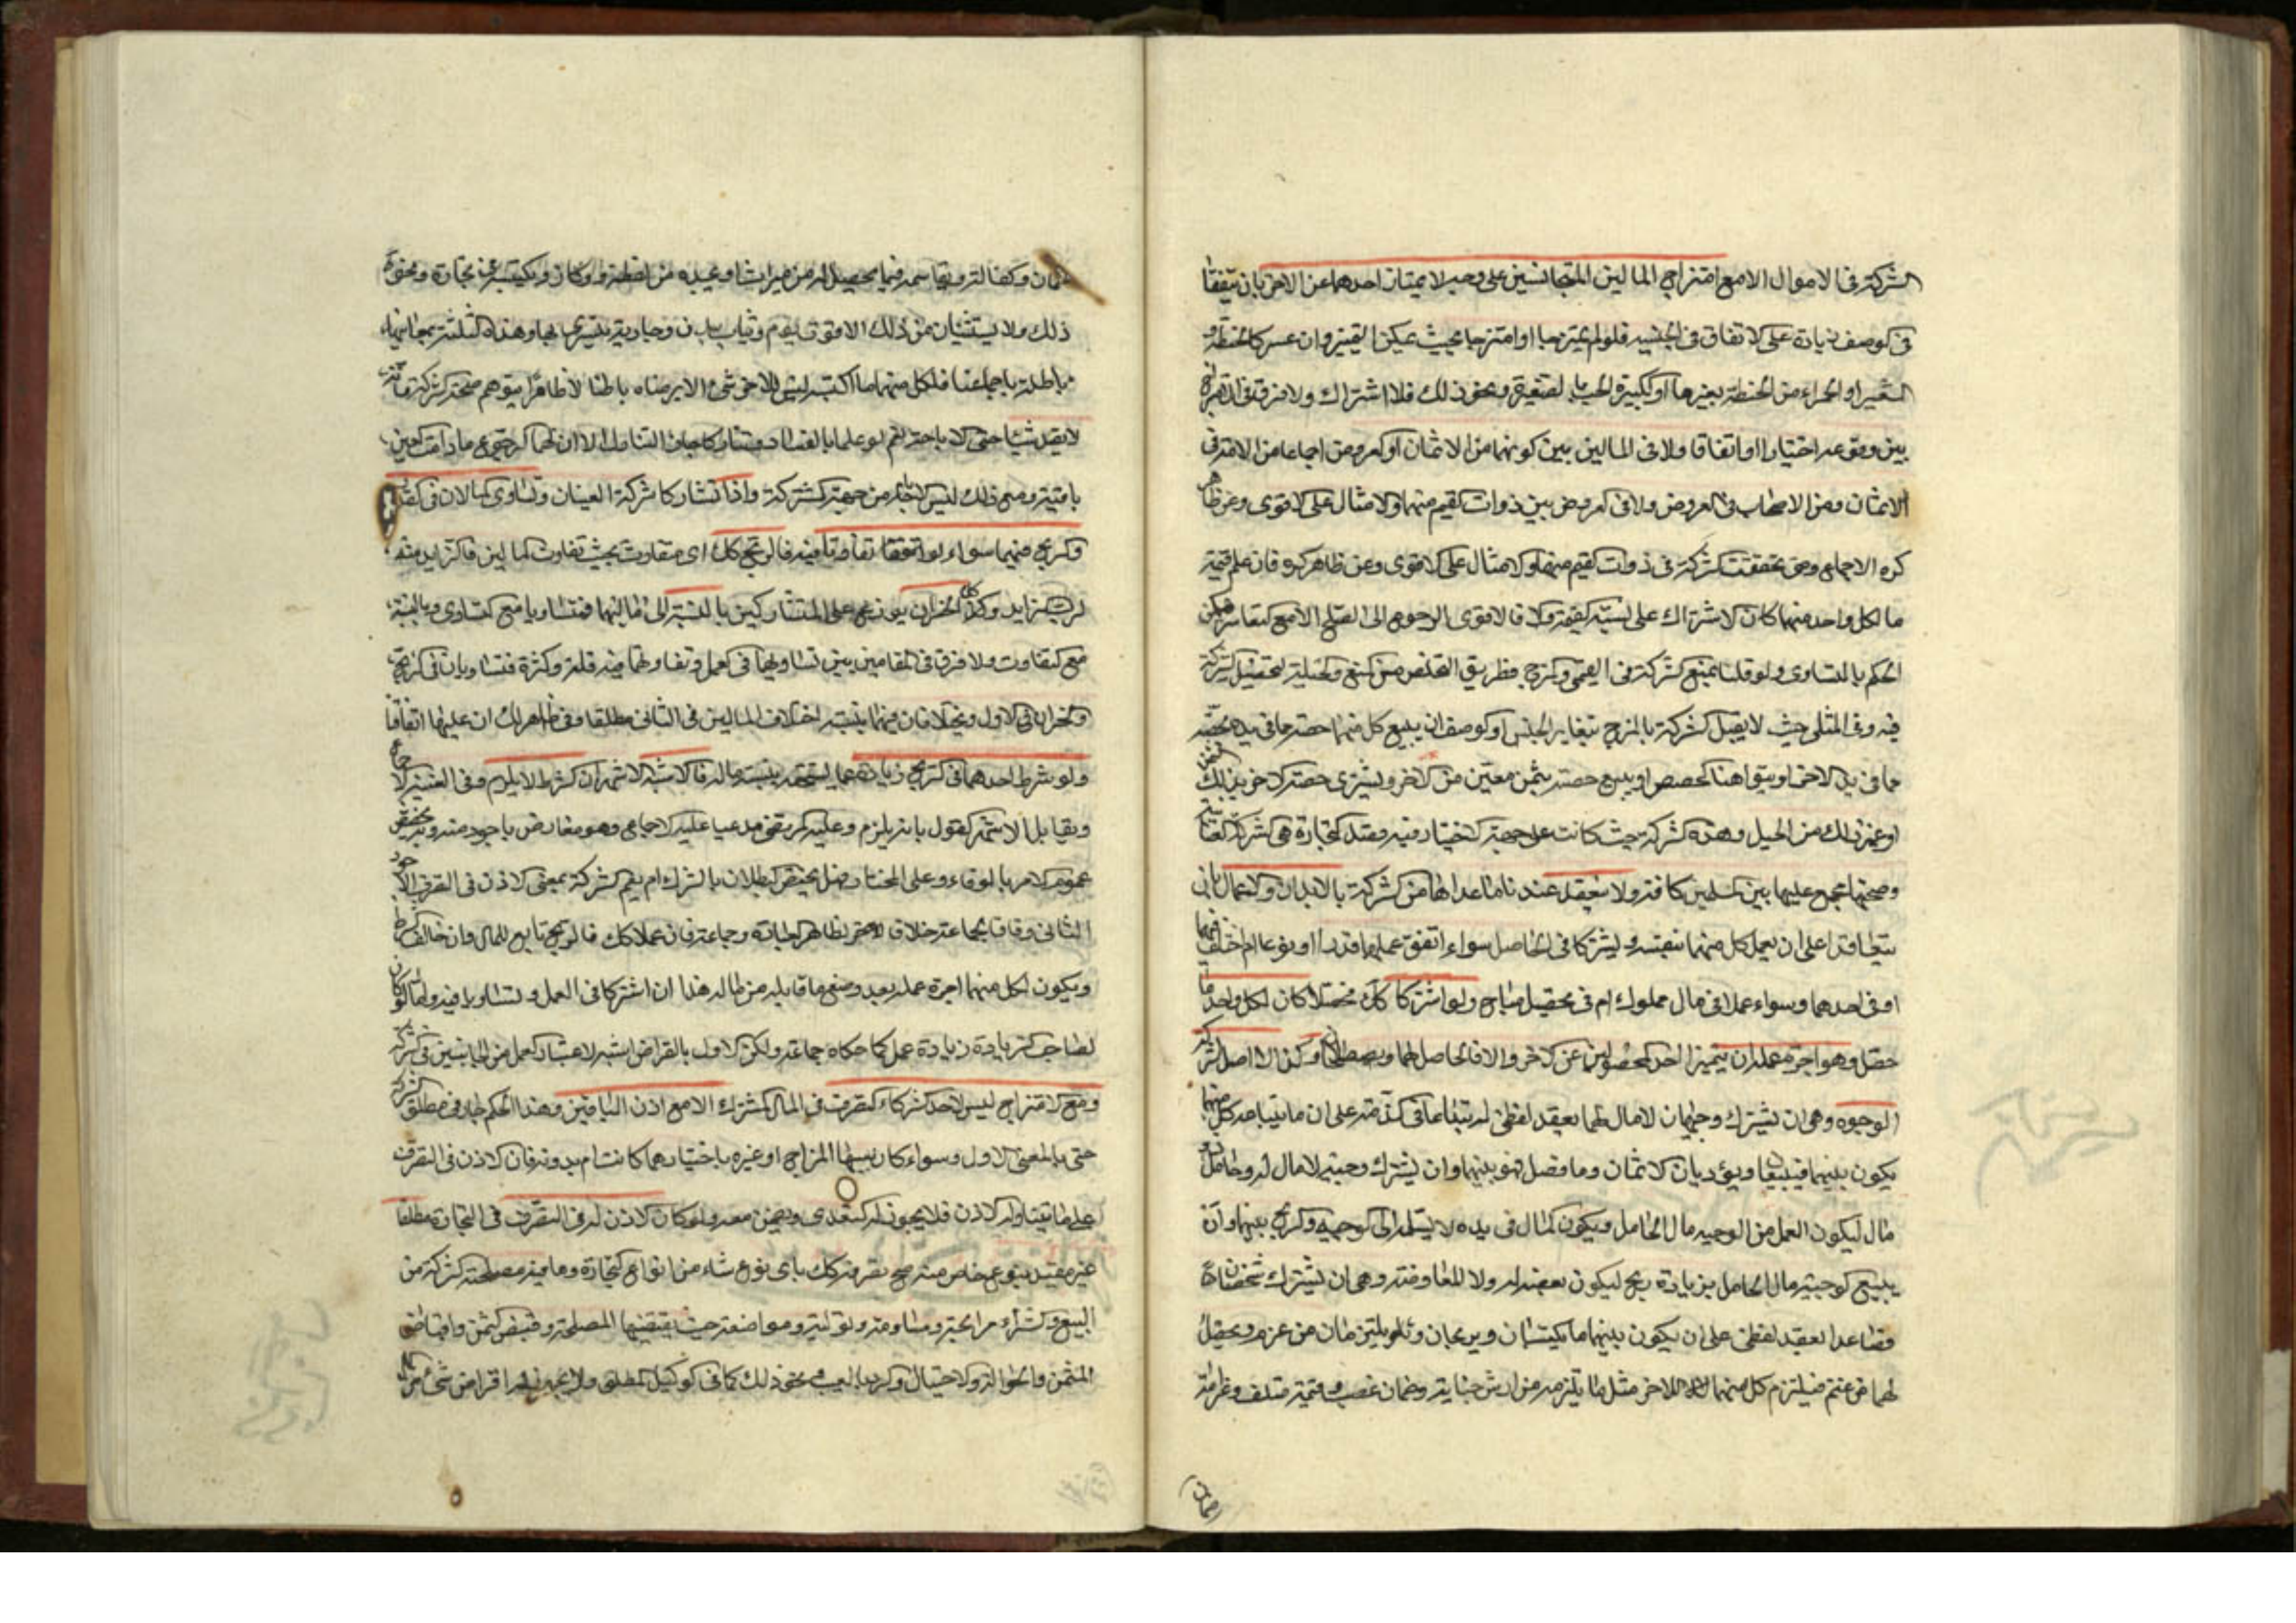 الشركة في الاموال الا مع امتزاج المالين المتجانسين على وجه لا يمتاز احدهما عن الاخر بان يتفقا
في الوصف زيادة على الاتفاق في الجنسية فلو لم يمتزجا او امتزجا بحيث يمكن التميز وان عسر كالحنطة
الشعير او الحمراء من الحنطة بغيرها او الكبيرة الحب بالصغيرة ونحو ذلك فلا اشتراك ولا فرق في
بين وقوعه اختيارا او اتفاقا ولا في المالين بين كونهما من الاثمان او العروض اجماعا من الامة في
الاثمان ومن الاصحاب في العروض ولا في العروض بين ذوات القيم منها والامثال على الاقوى وعن ظاهر
كره الاجماع ومتى تحققت الشركة في ذوات القيم منها والامثال على الاقوى وعن ظاهر كره فان علم قيمة
ما لكل واحد منهما كان الاشتراك على نسبة القيمة والا فالاقوى الرجوع الى الصلح الا مع
الحكم بالتساوي ولو قلنا بمنع الشركة في القيمي والمزج فطريق التخلص من المنع والحيلة لتحصيل الشركة
فيه وفي المثلي حيث لا يقبل الشركة بالمزج بتغاير الجنس او الوصف ان يبيع كل منهما حصة ما في يده بحصة
مما في يد الاخر او يتواهبا الحصص او يبيع حصته بثمن معين من الاخر ويشتري حصة الاخر بذلك الثمن
او غير ذلك من الحيل وهذه الشركة حيث كانت على جهة الاختيار فيه وقصد التجارة هي شركة العنان
وصحتها مجمع عليها بين المسلمين كافة ولا تنعقد عندنا ما عداها من الشركة بالابدان والاعمال بان
يتعاقدا على ان يعمل كل منهما بنفسه ويشتركا في الحاصل سواء اتفق عملهما قدرا او نوعا ام اختلف فيهما
او في احدهما وسواء عملا في مال مملوك ام في تحصيل مباح ولو اشتركا كك فحصلا كان لكل واحد ما
حصل وهو اجرة عمله ان يتميز احد الحصولين عن الاخر والا فالحاصل لهما ويصطلحان وكذا لا اصل لشركة
الوجوه وهي ان يشترك وجيهان لا مال لهما بعقد لفظي ليبتاعا في الذمة على ان ما يبتاعه كل منهما
يكون بينهما فيبيعان ويؤديان الاثمان وما فضل فهو بينهما وان يشترك وجيه لا مال له وخامل ذو
مال ليكون العمل من الوجيه مال الخامل ويكون المال في يده لا يسلمه الى الوجيه والربح بينهما وان
يبيع الوجيه مال الخامل بزيادة ربح ليكون بعضه له ولا للمفاوضة وهي ان يشترك شخصان
فصاعدا بعقد لفظي على ان يكون بينهما ما يكتسبان ويربحان ويلتزمان من غرم ويحصل
لهما من غنم فيلتزم كل منهما للاخر مثل ما يلزمه من ارش جناية وضمان غصب وقيمة متلف وغرامة
ضمان
ضمان وكفالة ويقاسمه فيما يحصل له من ميراث او يجده من لقطة وركاز ويكتسبه في تجارة ونحو
ذلك ولا يستثنيان من ذلك الا قوت يوم وثياب بدن وجارية يتسرى بها وهذه الثلثة بمعانيها
باطلة باجماعنا فلكل منهما ما اكتسبه ليس للاخر شئ الا برضاه باطنا لا ظاهرا بتوهم صحة الشركة
لا يفيد شيئا حتى الاباحة نعم لو علما بالفساد وتشاركا جاز التناول الا ان لهما الرجوع ما دامت العين
باقية ومع ذلك ليس الاخذ من جهة الشركة واذا تشاركا شركة العنان وتساوى المالان في القدر
فالربح بينهما سواء ولو اتفقا تفاوتا فيه فالربح كك اي متفاوت بحيث تفاوت المالين فالزايد منه
لرب الزايد وكذا الخسران يوزع على المتشاركين بالنسبة الى ماليهما فتساويا مع التساوي وبالنسبة
مع التفاوت ولا فرق في المقامين بين تساويهما في العمل وتفاوتهما فيه قلة وكثرة فتساويان في الربح
والخسران في الاول ويختلفان فيهما بنسبة اختلاف المالين في الثاني مطلقا وفي ظاهر لك ان عليهما اتفاقا
ولو شرط احدهما في الربح زيادة عما يستحقه بنسبة ماله فالاشبه الاشهر ان الشرط لا يلزم وفي الغنية الاجماع
ويقابل الاشهر القول بانه يلزم وعليه المرتضى مدعيا عليه الاجماع وهو معارض باجود منه وبه يخصص
عموم الامر بالوفاء وعلى المختار فهل يختص البطلان بالشرط ام يعم الشركة بمعنى الاذن في التصرف
الثاني وفاقا لجماعة خلافا لاخر لظاهر العبارة وجماعة فان عملا كك فالربح تابع للمال وان خالف الشرط
ويكون لكل منهما اجرة عمله بعد وضع ما قابله من ماله هذا ان اشتركا في العمل وتساويا فيه واما لو كان
لصاحب الزيادة زيادة عمل كما حكاه جماعة ولكن الاول بالقراض اشبه لاعتبار العمل من الجانبين في الشركة
ومع الامتزاج ليس لاحد الشركاء التصرف في المال المشترك الا مع اذن الباقين وهذا الحكم جار في مطلق الشركة
حتى بالمعنى الاول وسواء كان سببها المزاج او غيره باختيارهما كانت ام بدونه فان الاذن في التصرف
على ما يتناوله الاذن فلا يجوز له التعدي ويضمن معه ولو كان الاذن له في التصرف في التجارة مطلقا
غير مقيد بنوع خاص منه صح تصرفه كك باي نوع شاء من انواع التجارة وما فيه مصلحة الشركة من
البيع والشراء مرابحة ومساومة وتولية ومواضعة حيث يقتضيها المصلحة وقبض الثمن واقباض
المثمن والحوالة والاحتيال والرد بالعيب ونحو ذلك كما في الوكيل المطلق ولا يجوز له اقراض شئ من